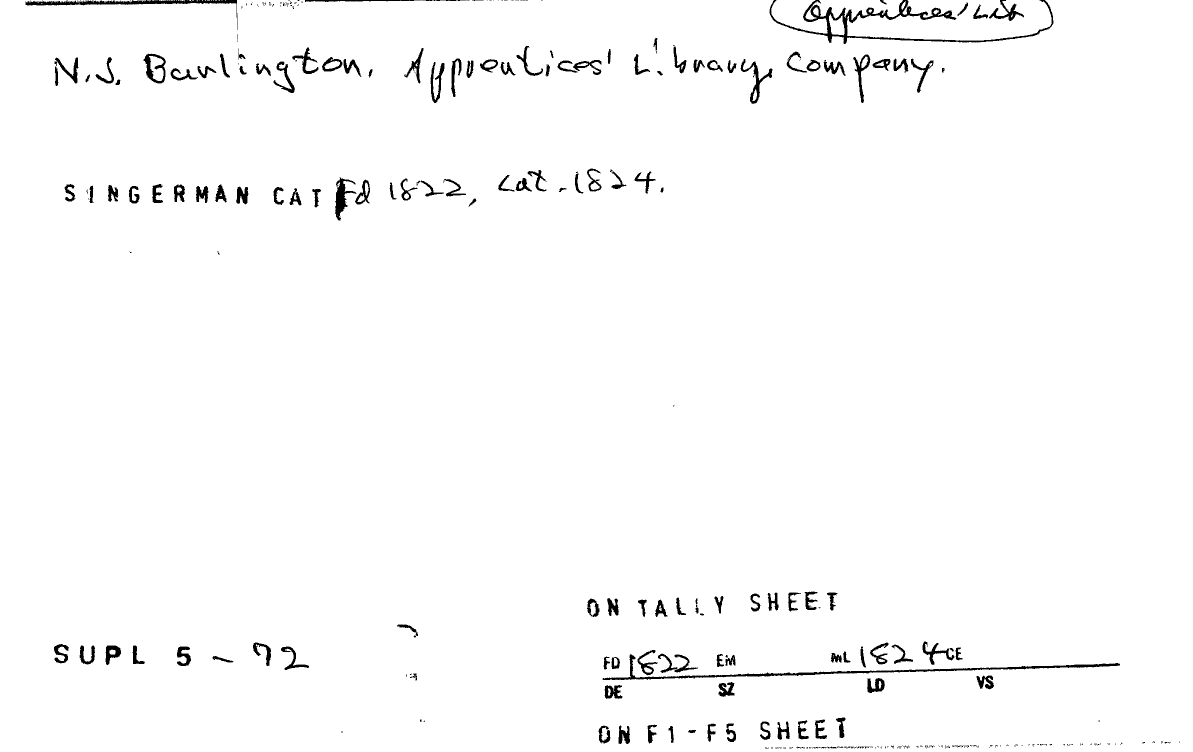 Apprentices' Lib
N.J. Burlington. Apprentices' Library Company.
SINGERMAN CAT Fd 1822, Cat. 1824.
ON TALLY SHEET
SUPL 5 - 92
FD 1822 EM ML 1824 CE
DE SZ LD VS
ON F1-F5 SHEET